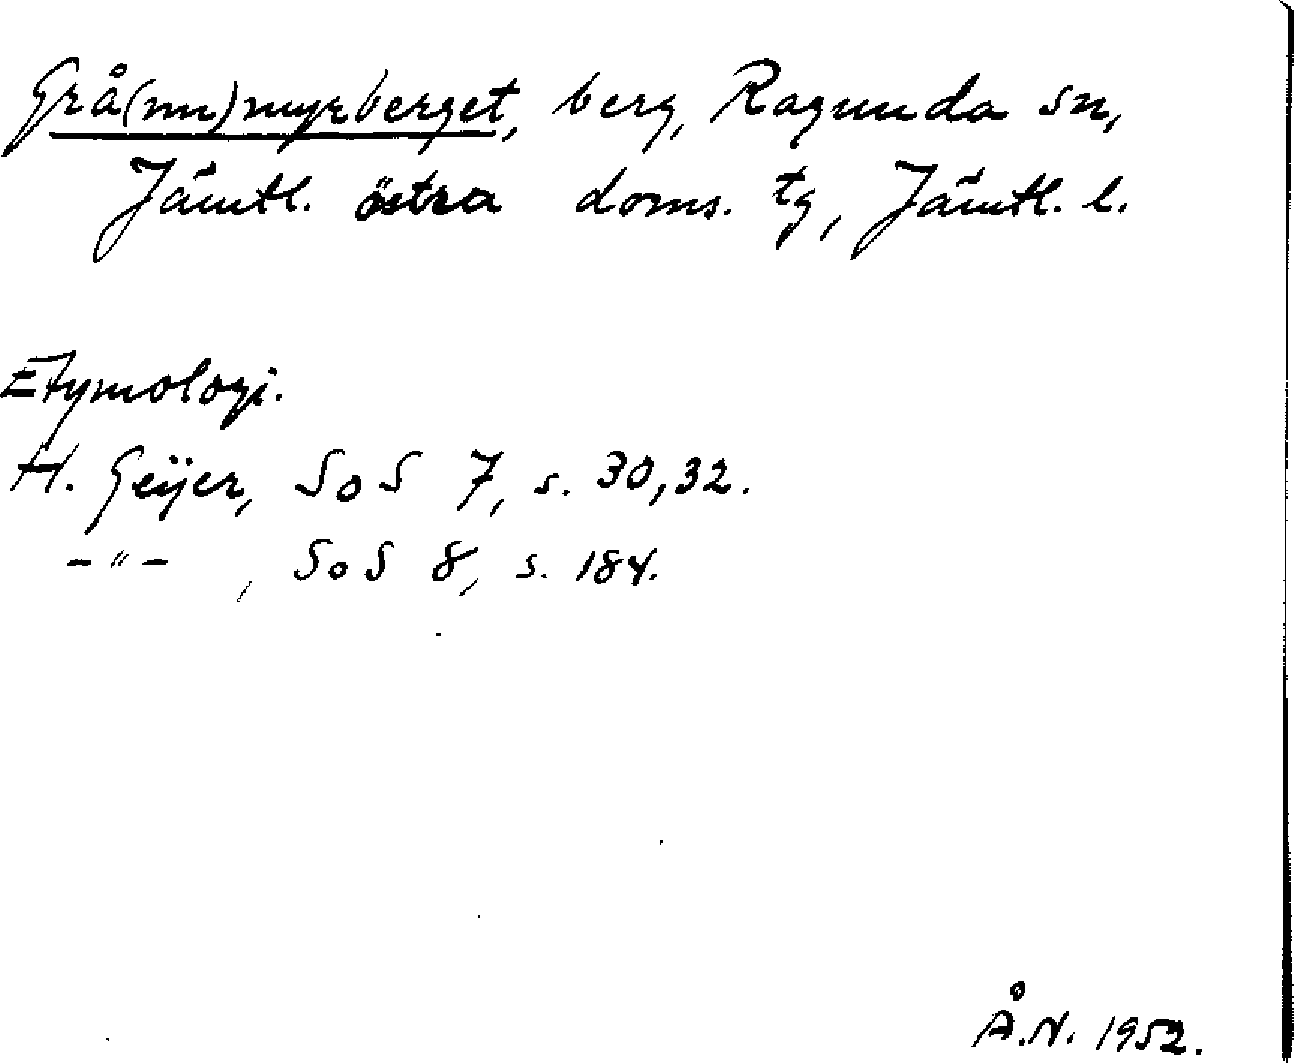 Grå(nn)myrberget, berg, Ragunda sn,
Jämtl. östra doms. tg, Jämtl. l.
Etymologi.
H. Geijer, SoS 7, s. 30, 32.
-"- , SoS 8, s. 184.
Å.N. 1952.